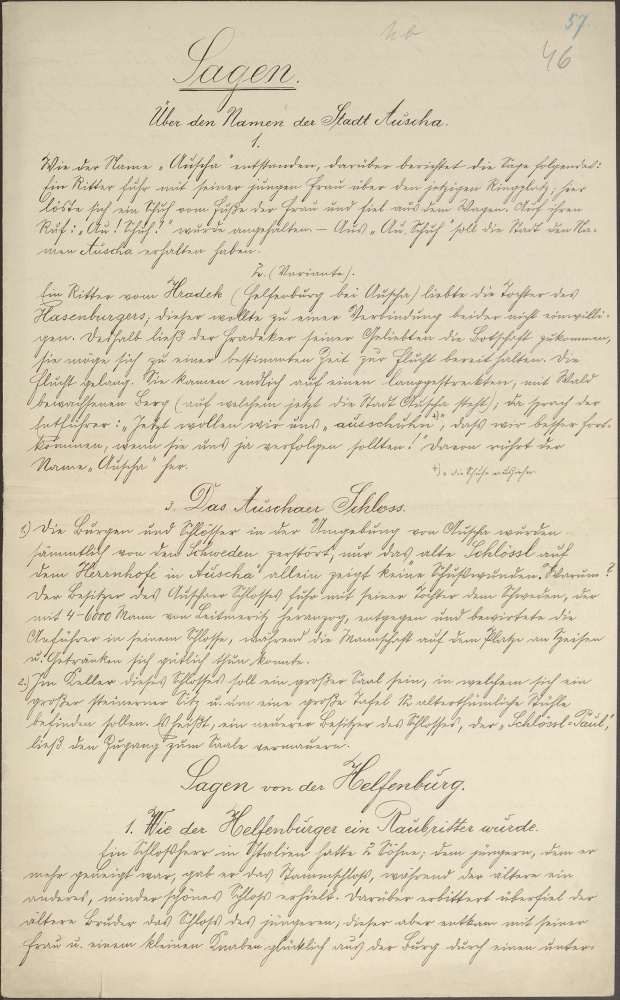 57.
46
Sagen.
Über den Namen der Stadt Auscha.
1.
Wie der Name „Auscha" entstanden, darüber berichtet die Sage folgendes:
Ein Ritter fuhr mit seiner jungen Frau über den jetzigen Ringplatz; hier
löste sich ein Schuh vom Fuße der Frau und fiel aus dem Wagen. Auf ihren
Ruf: „Au! Schuh!" wurde angehalten. — Aus „Au Schuh" soll die Stadt den Na-
men Auscha erhalten haben.
2. (Variante).
Ein Ritter vom Hradek (Helfenburg bei Auscha) liebte die Tochter des
Hasenburgers; dieser wollte zu einer Verbindung beider nicht einwilli-
gen. Deshalb ließ der Hradeker seiner Geliebten die Botschaft zukommen,
sie möge sich zu einer bestimmten Zeit zur Flucht bereit halten. Die
Flucht gelang. Sie kamen endlich auf einen langgestreckten, mit Wald
bewachsenen Berg (auf welchem jetzt die Stadt Auscha steht); da sprach der
Entführer: „Jetzt wollen wir uns „ausschuhen"*), daß wir besser fort-
kommen, wenn sie uns ja verfolgen sollten!" Davon rührt der
Name „Auscha" her.
*) = die Schuhe ausziehen
3. Das Auschaer Schloss.
1.) Die Burgen und Schlösser in der Umgebung von Auscha wurden
sämmtlich von den Schweden zerstört, nur das alte „Schlössl auf
dem Herrnhofe in Auscha" allein zeigt keine „Schußwunden." Warum?
Der Besitzer des Auschaer Schlosses fuhr mit seiner Tochter dem Schweden, der
mit 4-6000 Mann von Leitmeritz heranzog, entgegen und bewirtete die
Anführer in seinem Schlosse, während die Mannschaft auf dem Platze an Speisen
u. Getränken sich gütlich thun konnte.
2.) Im Keller dieses Schlosses soll ein großer Saal sein, in welchem sich ein
großer steinerner Sitz u. um eine große Tafel 12 alterthümliche Stühle
befinden sollen. Es heißt, ein neuerer Besitzer des Schlosses, der „Schlössl-Paul,"
ließ den Zugang zum Saale vermauern.
Sagen von der Helfenburg.
1. Wie der Helfenburger ein Raubritter wurde.
Ein Schloßherr in Italien hatte 2 Söhne; dem jüngern, dem er
mehr geneigt war, gab er das Stammschloß, während der ältere ein
anderes, minder schönes Schloß erhielt. Darüber erbittert überfiel der
ältere Bruder das Schloß des jüngeren; dieser aber entkam mit seiner
Frau u. einem kleinen Knaben glücklich aus der Burg durch einen unter-